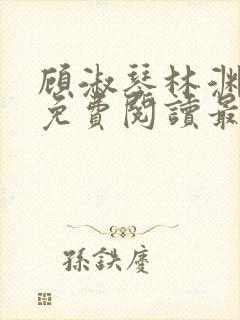 顾淑琴林渊
免費閱讀最
孫鉄慶